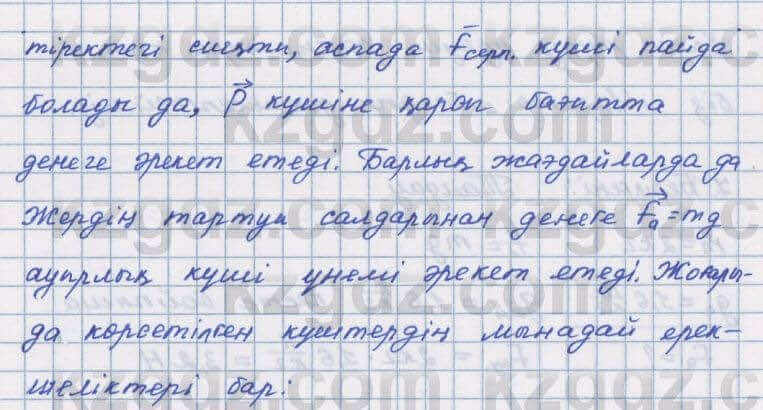 тіректегі сиқты, аспада F⃗серп. күші пайда
болады да, P⃗ күшіне қарсы бағытта
денеге әрекет етеді. Барлық жағдайларда да
Жердің тартуы салдарынан денеге F⃗а=mg
ауырлық күші үнемі әрекет етеді. Жоғары-
да көрсетілген күштердің мынадай ерек-
шеліктері бар: